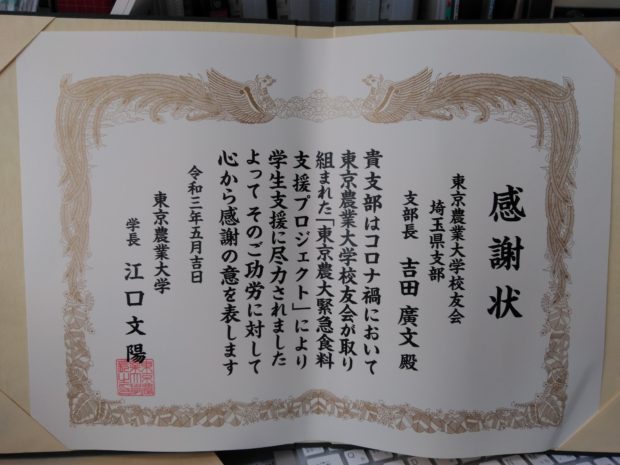 感謝状
東京農業大学校友会
埼玉県支部
支部長 吉田 廣文 殿
貴支部はコロナ禍において
東京農業大学校友会が取り
組まれた「東京農大緊急食料
支援プロジェクト」により
学生支援に尽力されました
よって そのご功労に対して
心から感謝の意を表します
令和三年五月吉日
東京農業大学
学長 江口文陽